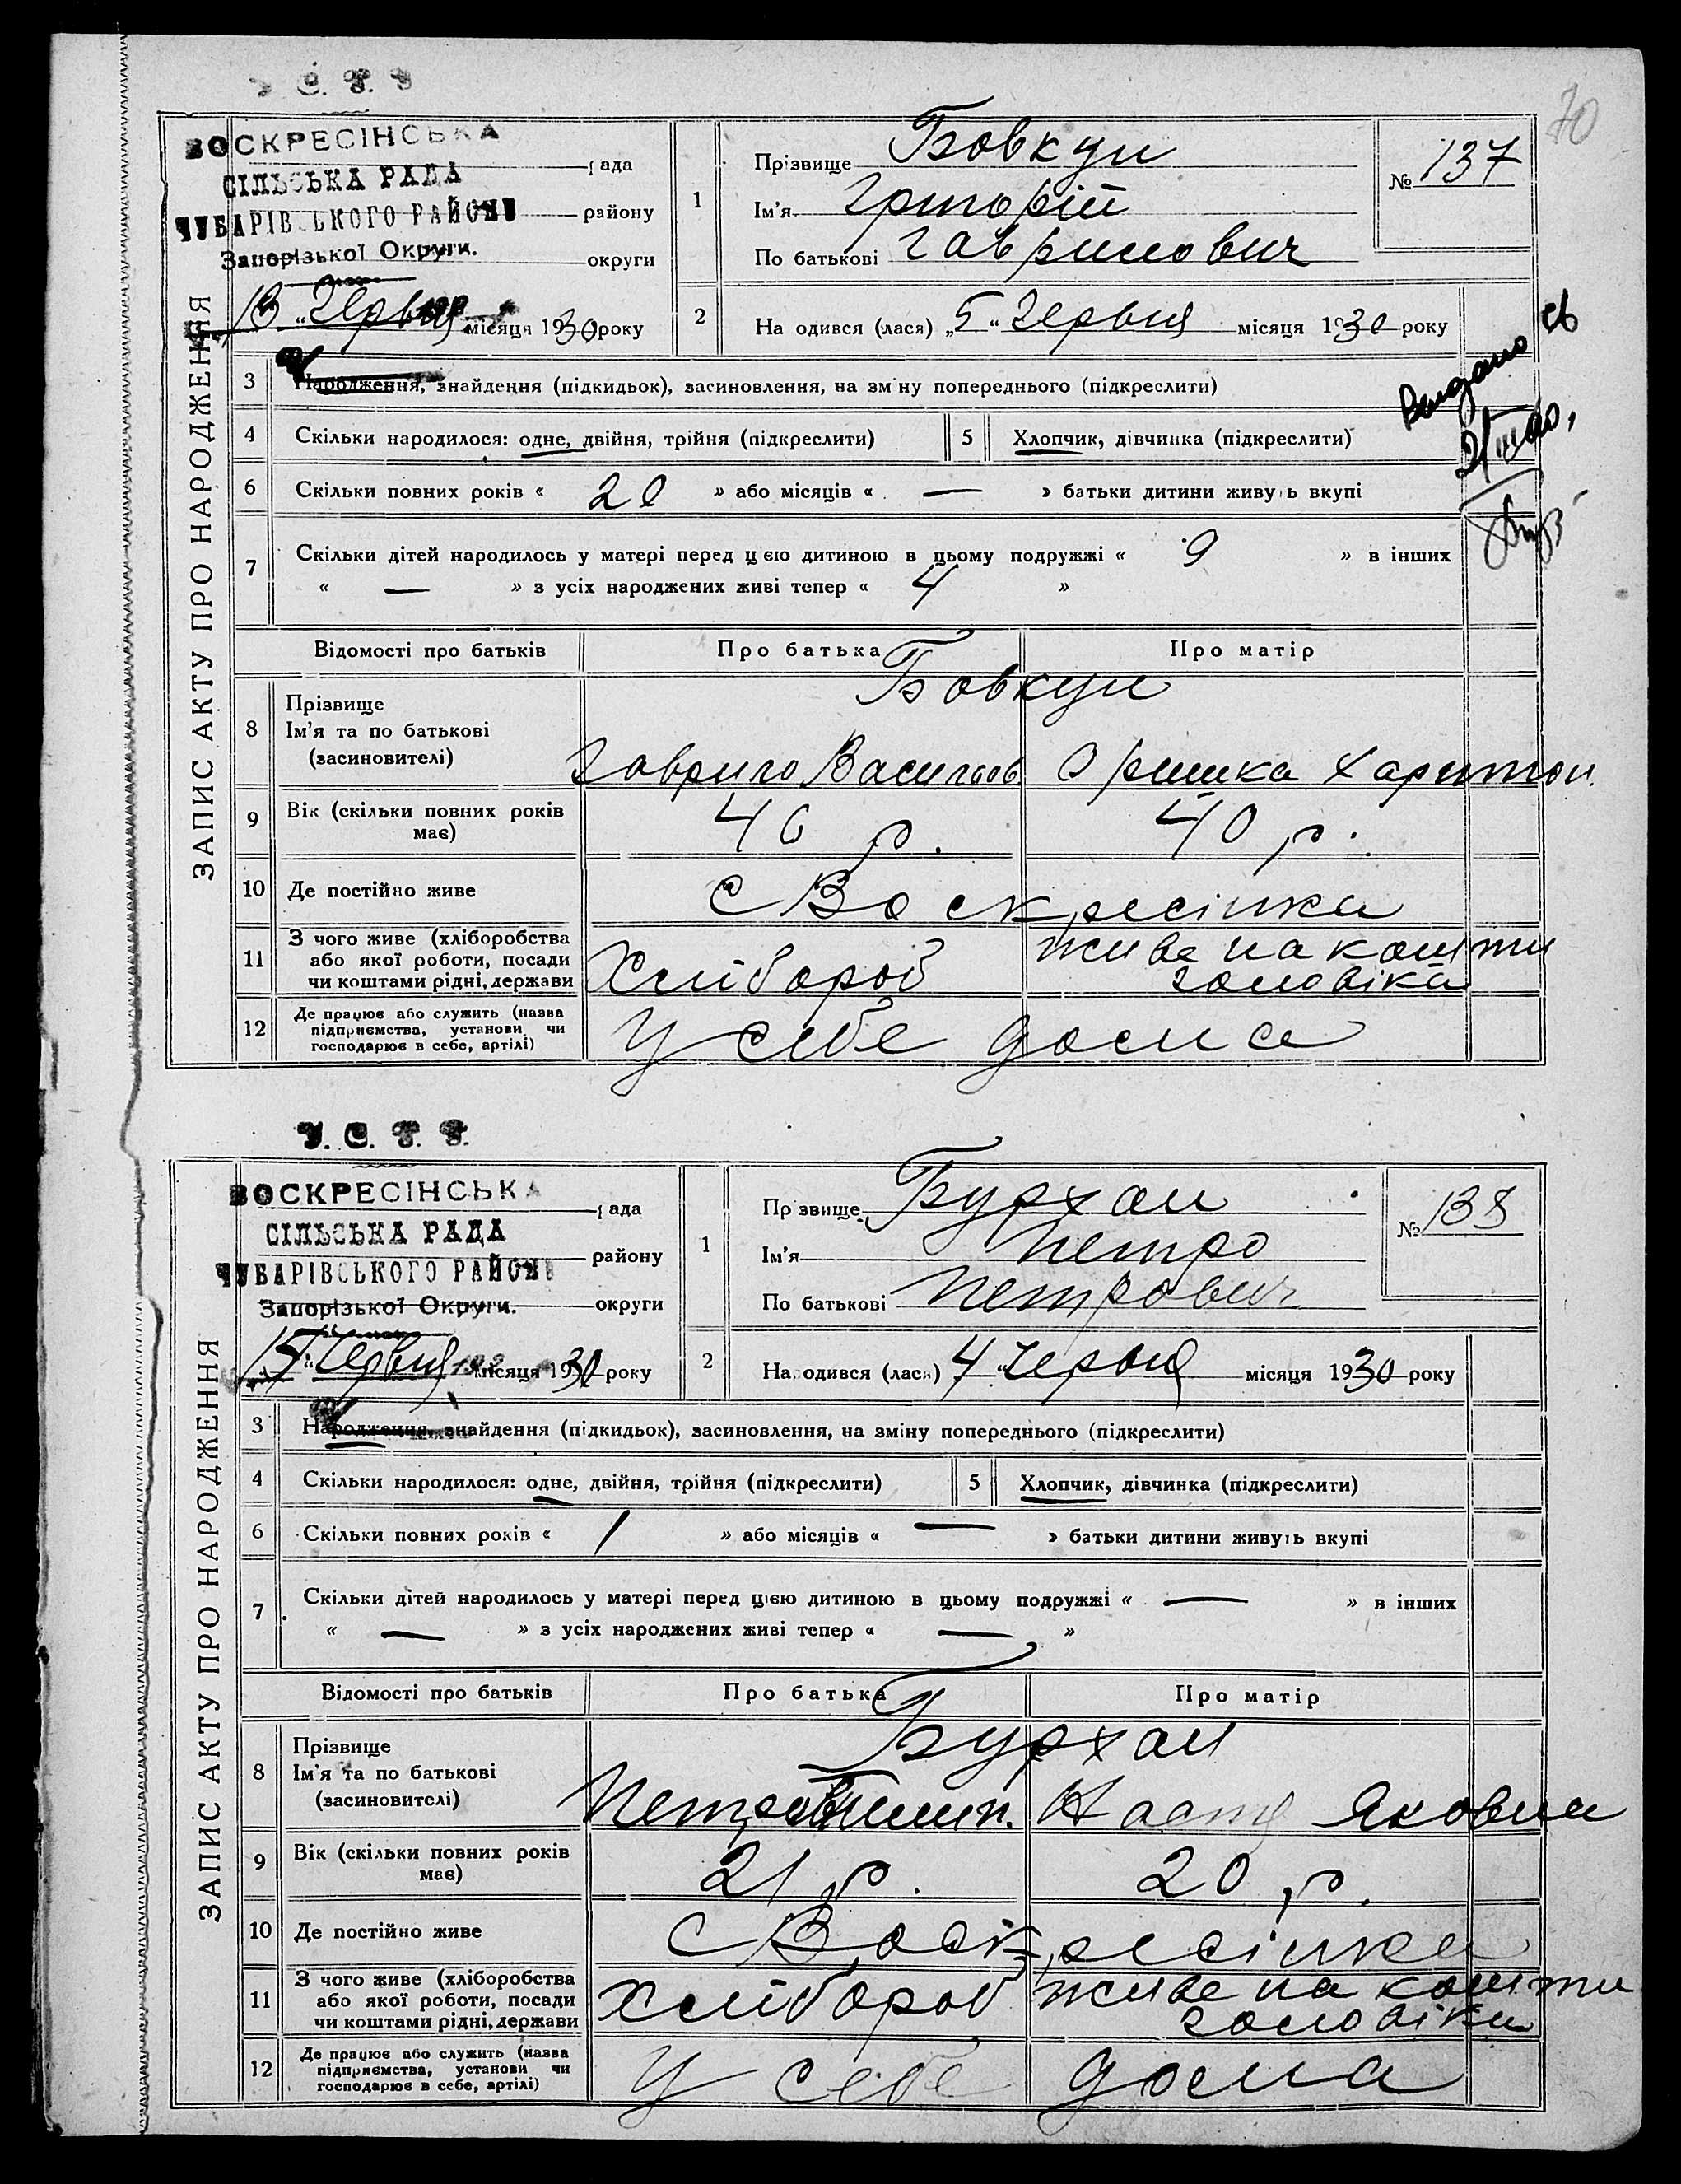 70
У. С. Р. Р.
ВОСКРЕСІНСЬКА рада
СІЛЬСЬКА РАДА
ЧУБАРІВСЬКОГО РАЙОНУ району
Запорізької Округи. округи
13 „Червня місяця 1930 року
ЗАПИС АКТУ ПРО НАРОДЖЕННЯ
1 Прізвище Бовкун
Ім'я Григорій
По батькові Гаврилович
№ 137
2 Народився (лася) „5“ Червня місяця 1930 року
Видано св
3 Народження, знайдення (підкидьок), засиновлення, на зміну попереднього (підкреслити)
4 Скільки народилося: одне, двійня, трійня (підкреслити) 5 Хлопчик, дівчинка (підкреслити)
6 Скільки повних років « 20 » або місяців « — » батьки дитини живуть вкупі
7 Скільки дітей народилось у матері перед цією дитиною в цьому подружжі « 9 » в інших
« — » з усіх народжених живі тепер « 4 »
Відомості про батьків Про батька Про матір
8 Прізвище Бовкун
Ім'я та по батькові
(засиновителі) Гаврило Васильов Оришка Харитон.
9 Вік (скільки повних років має) 46 р. 40 р.
10 Де постійно живе с Воскресінка
11 З чого живе (хліборобства або якої роботи, посади чи коштами рідні, держави Хлібороб живе на кошти чоловіка
12 Де працює або служить (назва підприємства, установи чи господарює в себе, артілі) У себе дома
У. С. Р. Р.
ВОСКРЕСІНСЬКА рада
СІЛЬСЬКА РАДА
ЧУБАРІВСЬКОГО РАЙОНУ району
Запорізької Округи. округи
15 „Червня місяця 1930 року
ЗАПИС АКТУ ПРО НАРОДЖЕННЯ
1 Прізвище Бурхан
Ім'я Петро
По батькові Петрович
№ 138
2 Народився (лася) 4 „Червня місяця 1930 року
3 Народження, знайдення (підкидьок), засиновлення, на зміну попереднього (підкреслити)
4 Скільки народилося: одне, двійня, трійня (підкреслити) 5 Хлопчик, дівчинка (підкреслити)
6 Скільки повних років « 1 » або місяців « — » батьки дитини живуть вкупі
7 Скільки дітей народилось у матері перед цією дитиною в цьому подружжі « — » в інших
« — » з усіх народжених живі тепер « — »
Відомості про батьків Про батька Про матір
8 Прізвище Бурхан
Ім'я та по батькові
(засиновителі) Петро Настя Яковна
9 Вік (скільки повних років має) 21 р. 20 р.
10 Де постійно живе с Воскресінка
11 З чого живе (хліборобства або якої роботи, посади чи коштами рідні, держави Хлібороб живе на кошти чоловіка
12 Де працює або служить (назва підприємства, установи чи господарює в себе, артілі) У себе дома